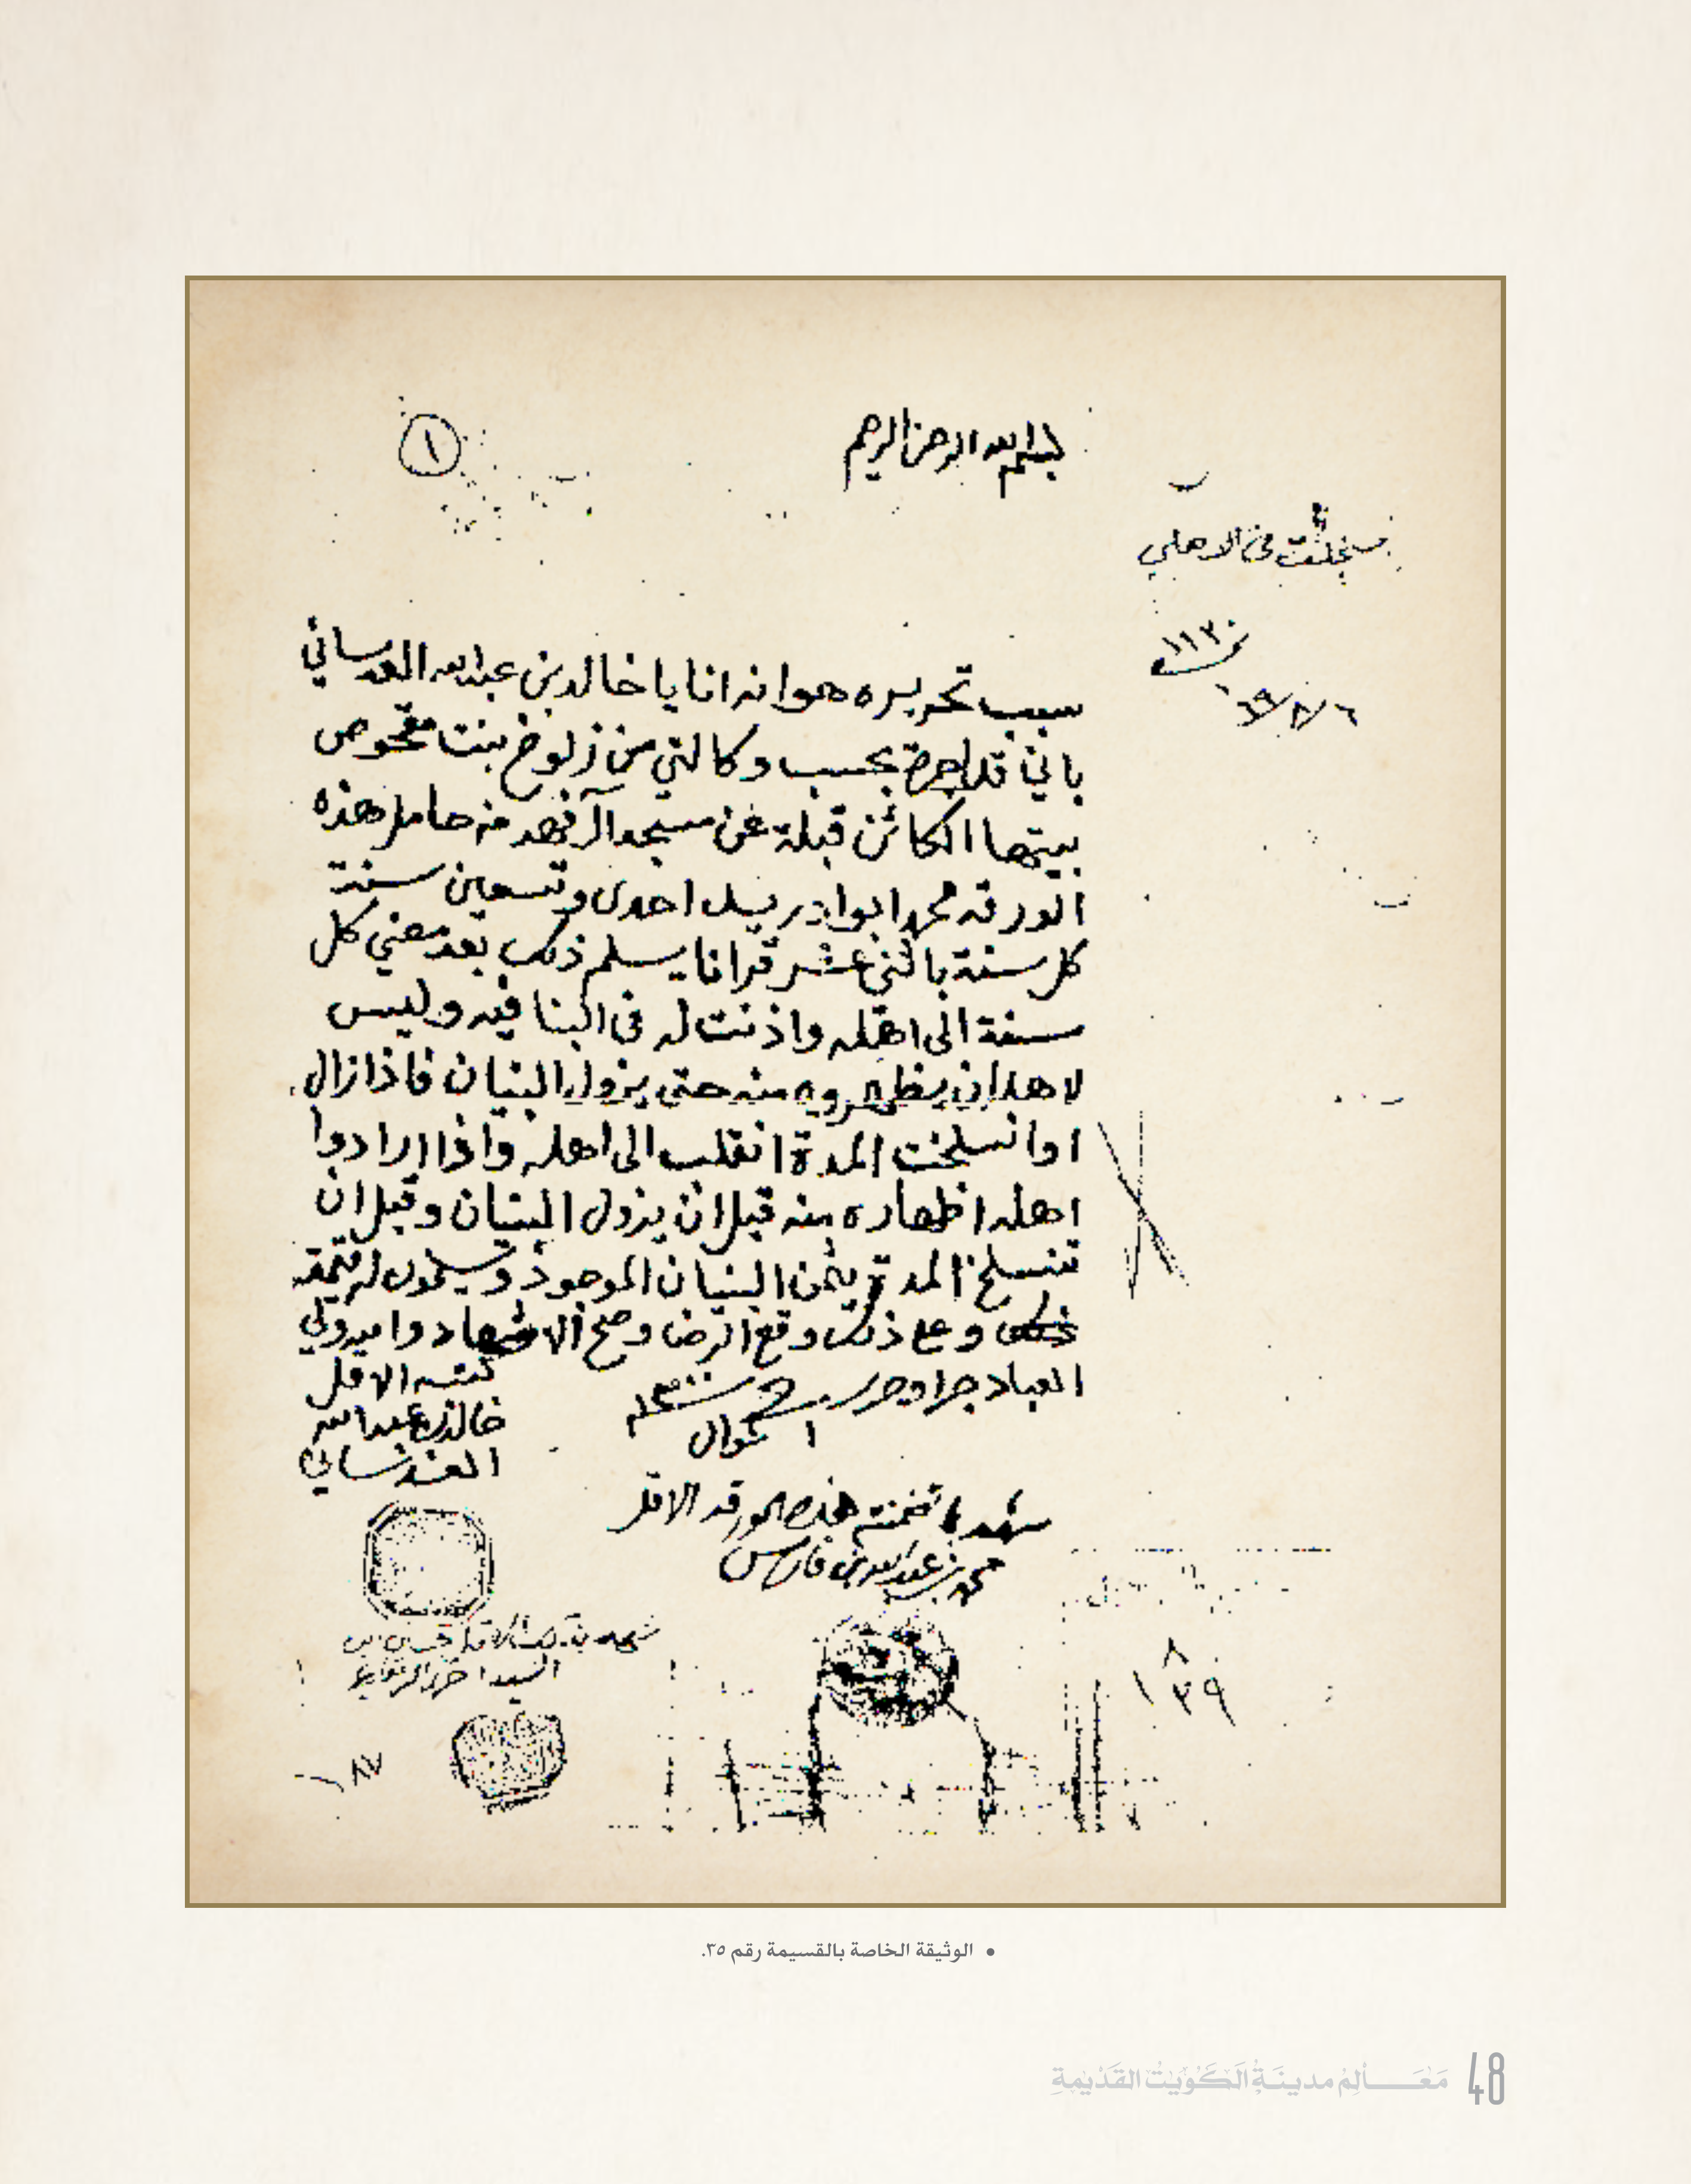 بسم الله الرحمن الرحيم
١
سجلت في الاهلي
١١٣٠
سبب تحريره هو انه انا يا خالد بن عبد الله العدساني
باني قد اجرة بحسب وكالتي من زلوخ بنت مقحوص
بيتها الكائن قبلة عن مسجد آل فهد منه حامل هذه
الورقه محمد ابو ادريس احدى وتسعين سنة
كل سنة باثني عشر قرانا يسلم ذلك بعد مضي كل
سنة الى اهله واذنت له في البنا فيه وليس
لاهله ان يظهروه منه حتى يزول البنيان فاذا زال
او انسلخت المدة انقلب الى اهله واذا ارادوا
اهله اظهاره منه قبل ان يزول البنيان وقبل ان
تنسلخ المدة يثمن البنيان الموجود ويسلمون له قيمته
وعلى ذلك وقع الرضا وصح الاشهاد وامير ولي
العباد جرا وحرر في ١ شوال سنة ١٣٠٠
كتبه الاقل
خالد بن عبد الله
العدساني
شهد بما تضمنته هذه الورقه الاقل
محمد بن عبد الله بن فارس
شهد بذلك الاقل
السيد احمد الرفاعي
٨
١٣٩
• الوثيقة الخاصة بالقسيمة رقم ٣٥.
مَعَالِمُ مدينَةِ الكُوَيْت القَدْيمةِ 48